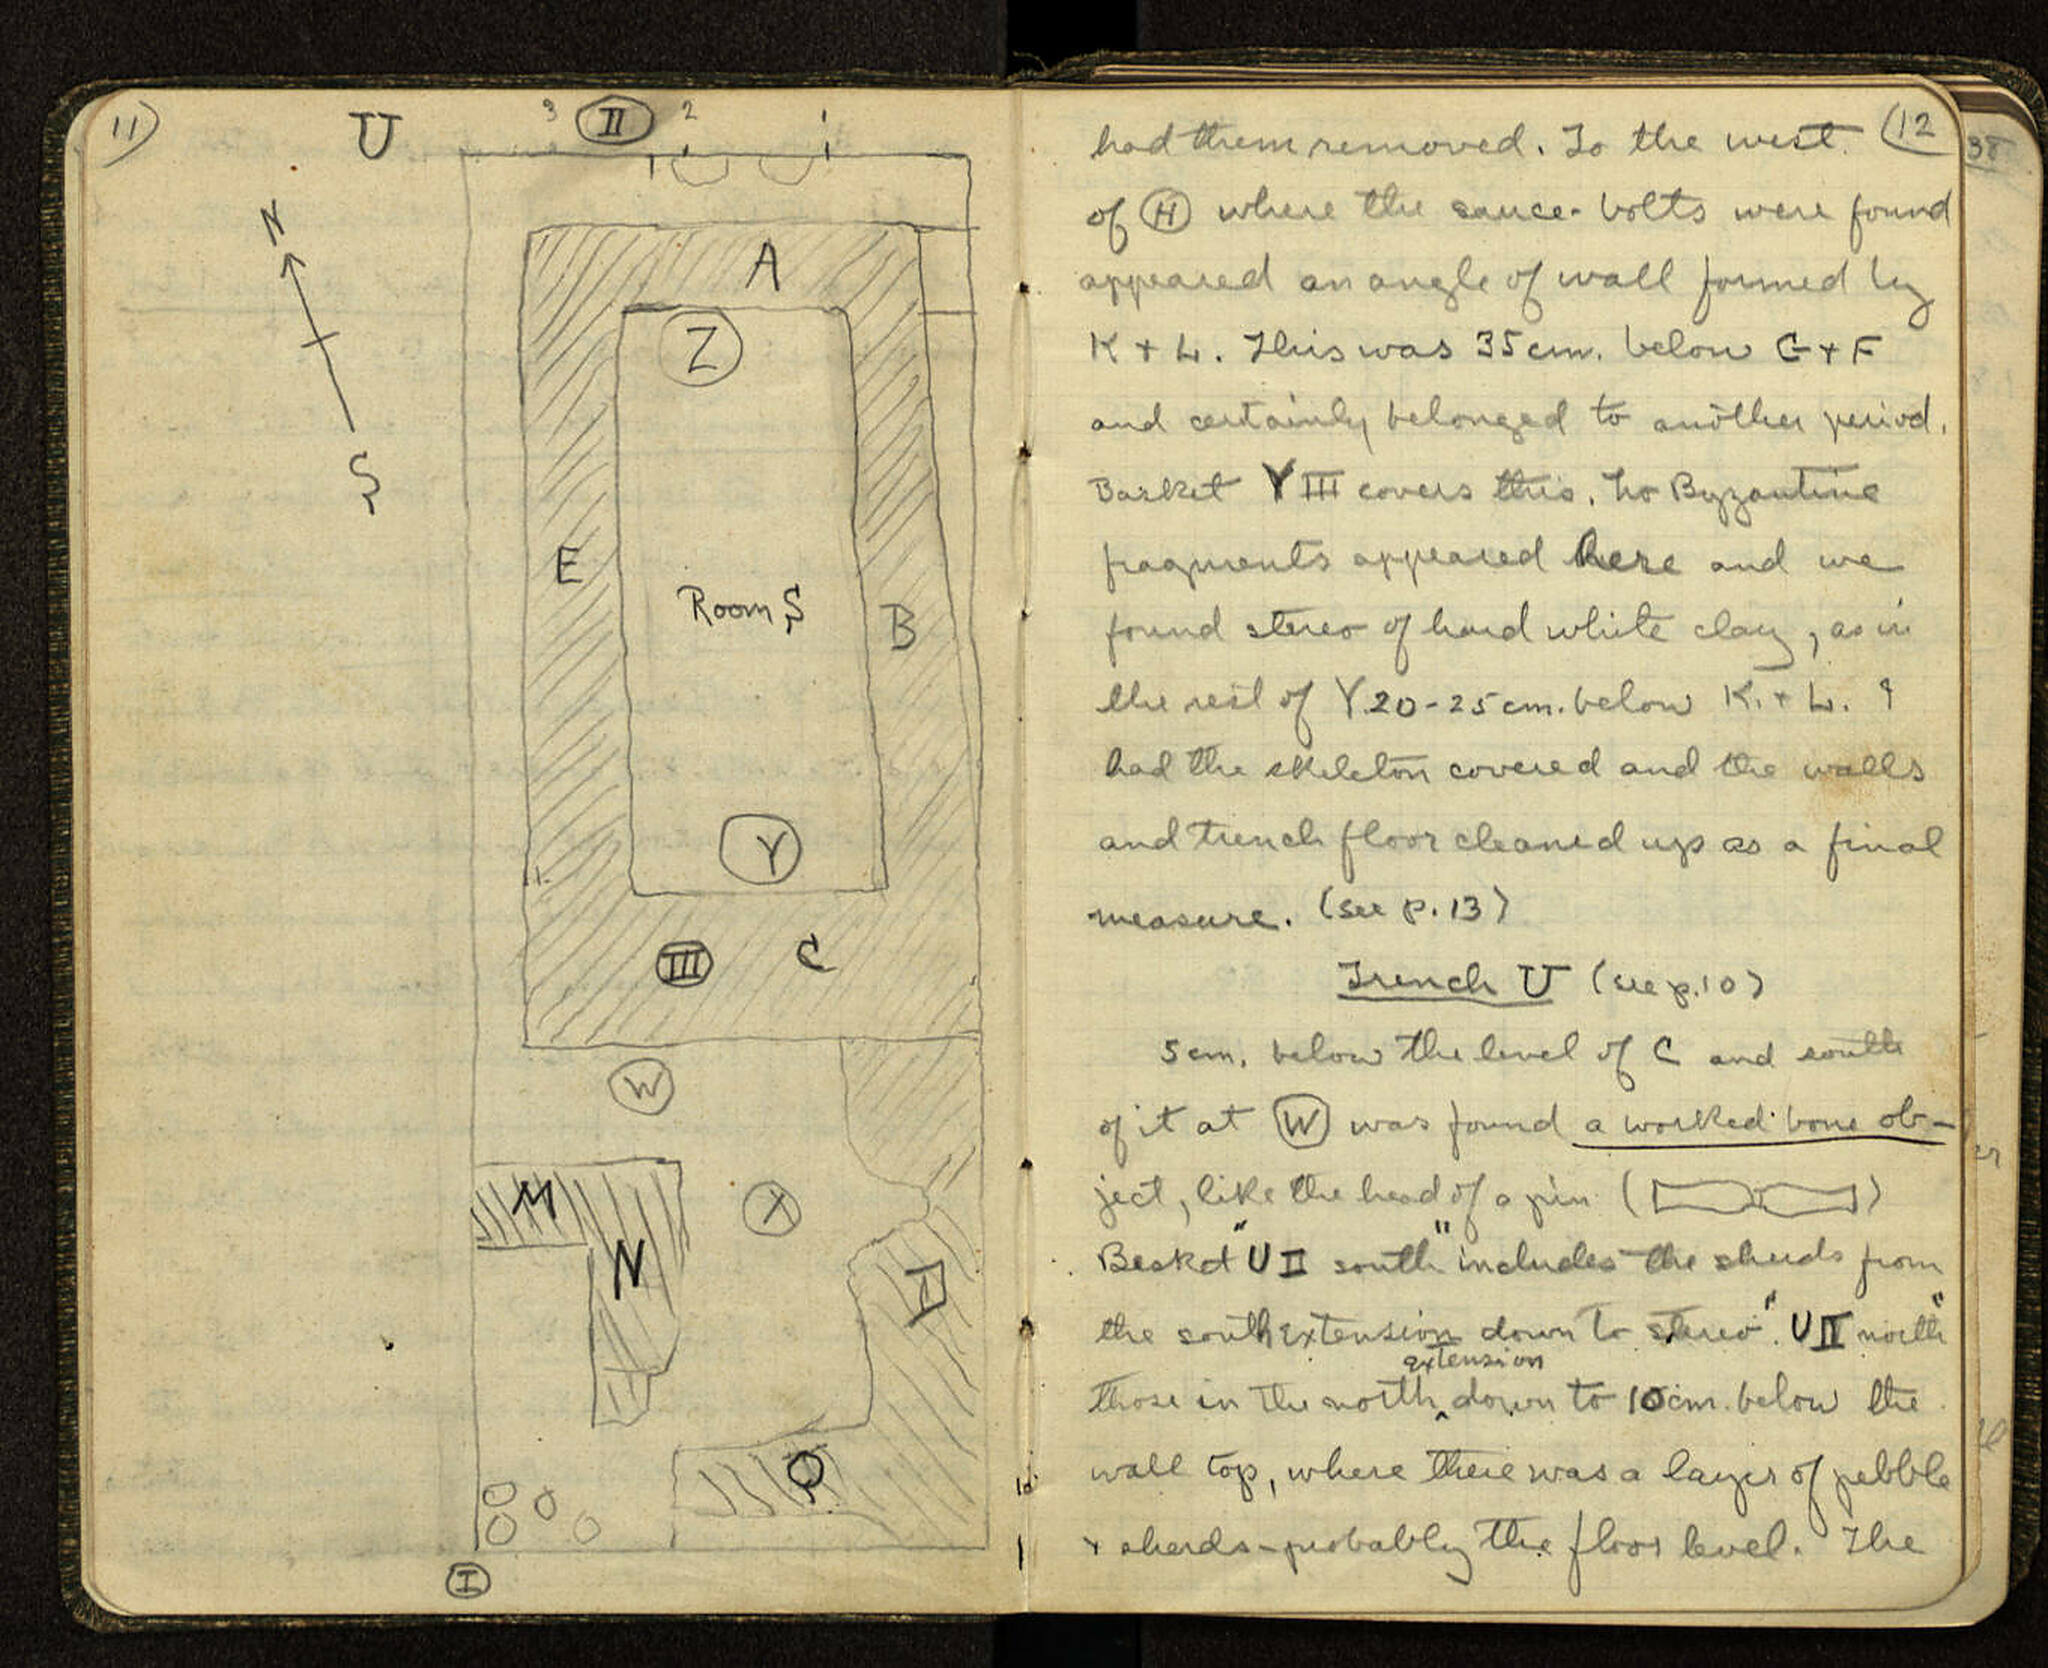 11)
U
3 II 2 1
N
S
A
Z
E
Room S
B
Y
III C
W
M
X
N
D
O
I
(12
38
had them removed. To the west
of H where the sauce-bolts were found
appeared an angle of wall formed by
K + L. This was 35 cm. below G + F
and certainly belonged to another period.
Basket Y III covers this. No Byzantine
fragments appeared here and we
found stereo of hard white clay, as in
the rest of Y 20-25 cm. below K. + L. I
had the skeleton covered and the walls
and trench floor cleaned up as a final
measure. (see p. 13)
Trench U (see p. 10)
5 cm. below the level of C and south
of it at W was found a worked bone ob-
ject, like the head of a pin ( )
Basket "U II south" includes the sherds from
the south extension down to stereo. "U II north"
extension
those in the north ‸ down to 10 cm. below the
wall top, where there was a layer of pebble
+ sherds - probably the floor level. The